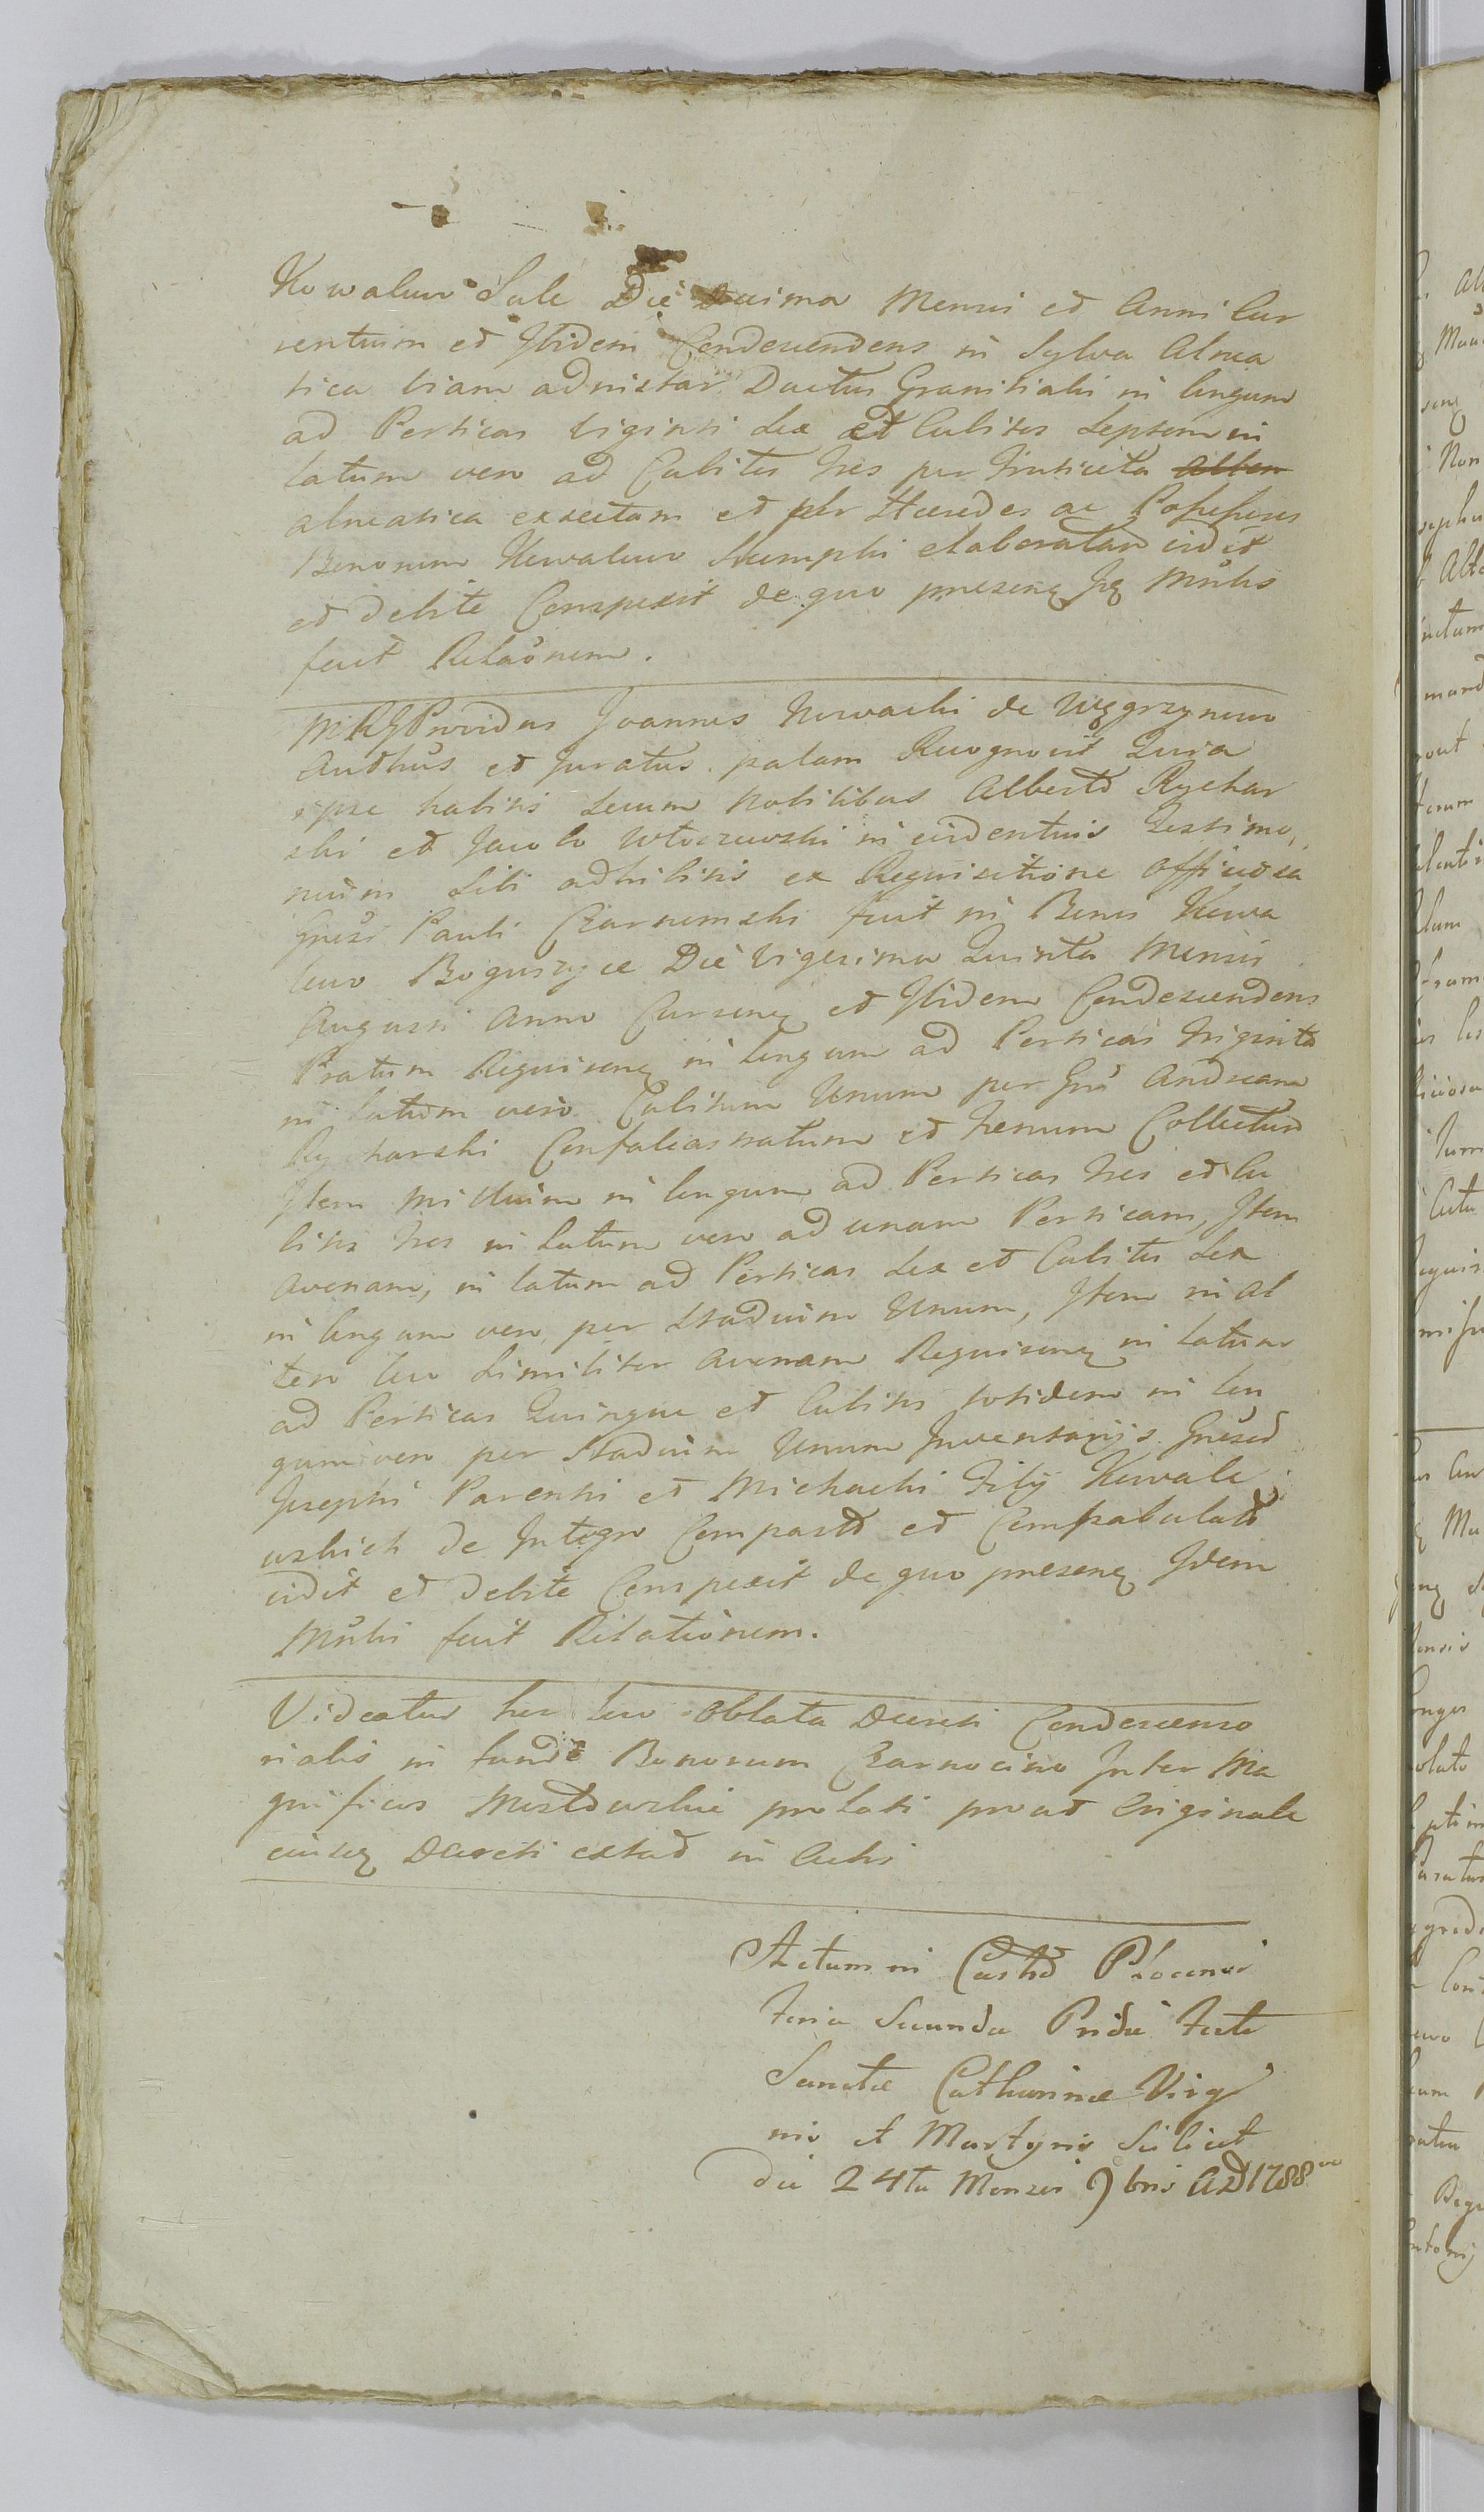 Kowalewo Sule Die Decima Mensis et Anni Cur
rentium et Ibidem Condescendens in Sylva Alnea
tica viam ad nistar Ductus Granitialis in longum
ad Perticas viginti sex et Cubitos septem in
latum vero ad Cubitos tres per fruticeta
alneatica exsectam et per Haeredes ac Possessores
Bonorum Kowalewo Skumpki elaboratam vidit
et debite Conspexit de quo praesens Mnlis
fecit Relaonem.
Providus Joannes Nowacki de Węgrzynowo
Authus et Juratus palam Recognovit Quia
ipse habitis secum Nobilibus Alberto Rychar
ski et Jacobo Wtoczewski in evidentius Testimo,
nium sibi adhibitis ex Requisitione officiosa
Gnesi Pauli Czarnomski fuit in Bonis Kowa
lewo Boguszyce Die Vigesima Quinta Mensis
Augusti Anno Cursens et Ibidem Condescendens
Pratum Requirens in longum ad Perticas triginta
in latum vero Cubitum Unum per Gnm Andream
Rycharski Confalcastratum et Fenum Collectum
Item Millium in longum ad Perticas tres et Cu
bitos tres in latum vero ad unam Perticam, Item
avenam, in latum ad Perticas sex et Cubitos sex
in longum vero per stadium Unum, Item in al
tero loco similiter avenam Requirens in latum
ad Perticas Quinque et Cubitos totidem in lon
gum vero per Stadium Unum Inventarijs
Josephi Parentis et Michaelis Filij Kowale
wskich de Integro Compastd et Compabulatd
vidit et debite Conspexit de quo praesens Idem
Mnlis fecit Relationem.
Videatur hoc loco Oblata Decreti Condescenso
rialis in fundo Bonorum Czarnocino Inter Ma
gnificos prolati prout Originale
eiusq Decreti extad in Actis
Actum in Castro Plocensi
Feria Secunda Pridie Festi
Sanctae Catharinae Virgi
nis et Martyris Scilicet
die 24ta Mensis 9bris AD 1788vo